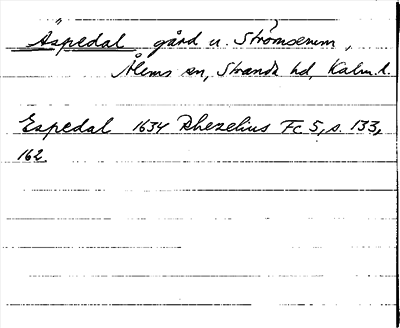 Äspedal gård u. Strömserum,
Ålems sn, Stranda hd, Kalm. l.
Espedal 1634 Rhezelius Fc 5, s. 133,
162